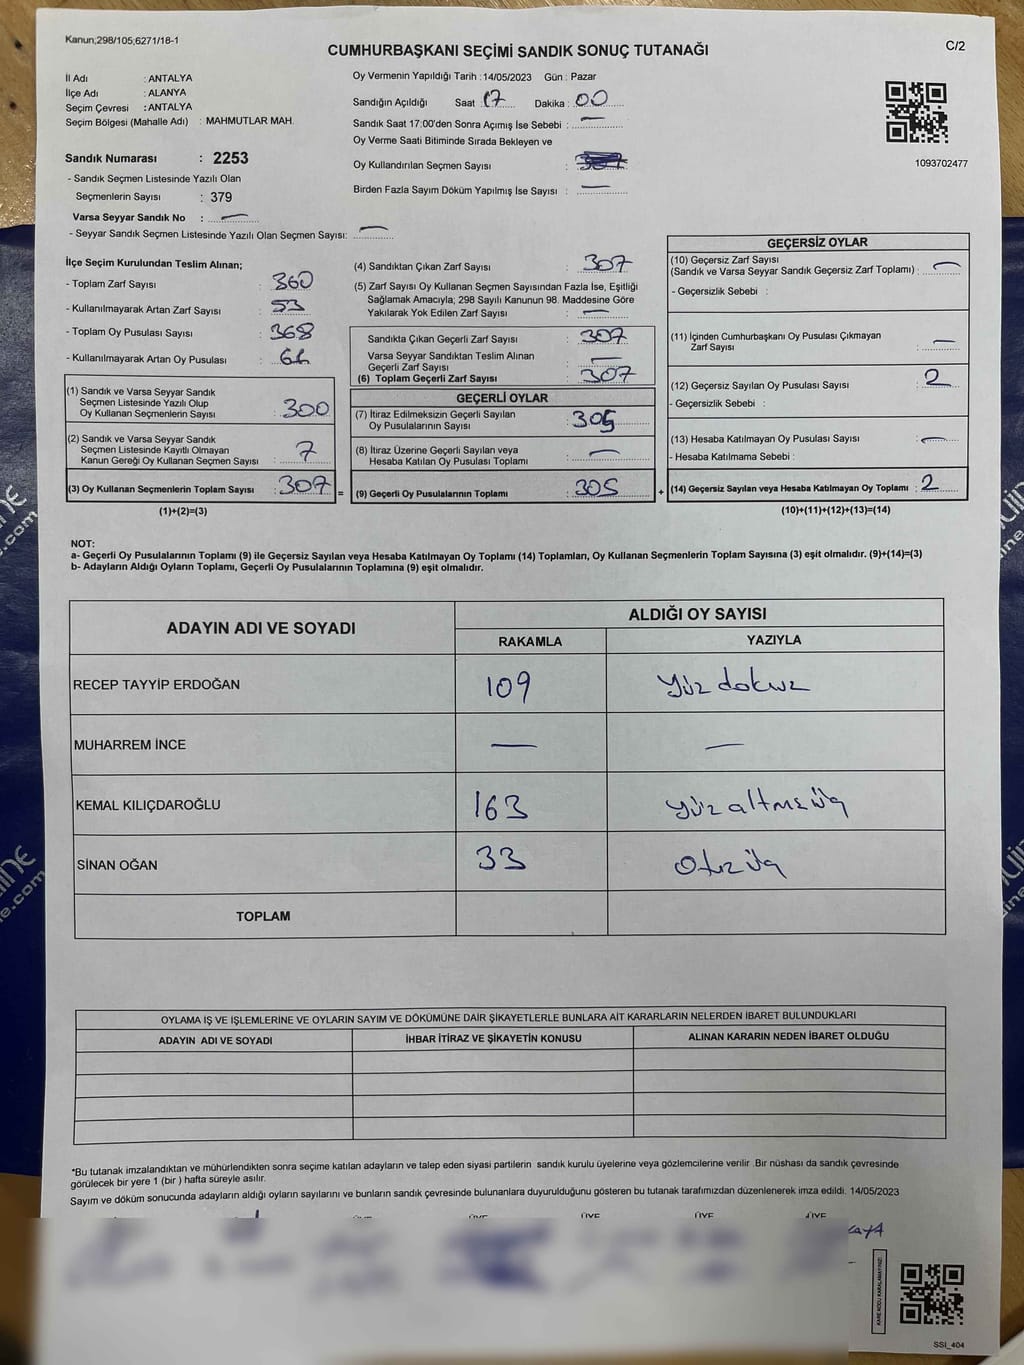 Kanun;298/105;6271/18-1
CUMHURBAŞKANI SEÇİMİ SANDIK SONUÇ TUTANAĞI
C/2
İl Adı : ANTALYA
İlçe Adı : ALANYA
Seçim Çevresi : ANTALYA
Seçim Bölgesi (Mahalle Adı) : MAHMUTLAR MAH.
Sandık Numarası : 2253
- Sandık Seçmen Listesinde Yazılı Olan
Seçmenlerin Sayısı : 379
Varsa Seyyar Sandık No : —
- Seyyar Sandık Seçmen Listesinde Yazılı Olan Seçmen Sayısı: —
Oy Vermenin Yapıldığı Tarih : 14/05/2023 Gün : Pazar
Sandığın Açıldığı Saat : 17 Dakika : 00
Sandık Saat 17:00'den Sonra Açımış İse Sebebi : —
Oy Verme Saati Bitiminde Sırada Bekleyen ve
Oy Kullandırılan Seçmen Sayısı :
Birden Fazla Sayım Döküm Yapılmış İse Sayısı : —
1093702477
İlçe Seçim Kurulundan Teslim Alınan;
- Toplam Zarf Sayısı : 360
- Kullanılmayarak Artan Zarf Sayısı : 53
- Toplam Oy Pusulası Sayısı : 368
- Kullanılmayarak Artan Oy Pusulası :
(1) Sandık ve Varsa Seyyar Sandık
Seçmen Listesinde Yazılı Olup
Oy Kullanan Seçmenlerin Sayısı : 300
(2) Sandık ve Varsa Seyyar Sandık
Seçmen Listesinde Kayıtlı Olmayan
Kanun Gereği Oy Kullanan Seçmen Sayısı : 7
(3) Oy Kullanan Seçmenlerin Toplam Sayısı : 307 =
(1)+(2)=(3)
(4) Sandıktan Çıkan Zarf Sayısı : 307
(5) Zarf Sayısı Oy Kullanan Seçmen Sayısından Fazla İse, Eşitliği
Sağlamak Amacıyla; 298 Sayılı Kanunun 98. Maddesine Göre
Yakılarak Yok Edilen Zarf Sayısı : —
Sandıkta Çıkan Geçerli Zarf Sayısı : 307
Varsa Seyyar Sandıktan Teslim Alınan
Geçerli Zarf Sayısı : —
(6) Toplam Geçerli Zarf Sayısı : 307
GEÇERLİ OYLAR
(7) İtiraz Edilmeksizin Geçerli Sayılan
Oy Pusulalarının Sayısı : 305
(8) İtiraz Üzerine Geçerli Sayılan veya
Hesaba Katılan Oy Pusulası Toplamı : —
(9) Geçerli Oy Pusulalarının Toplamı : 305 +
GEÇERSİZ OYLAR
(10) Geçersiz Zarf Sayısı
(Sandık ve Varsa Seyyar Sandık Geçersiz Zarf Toplamı) : —
- Geçersizlik Sebebi :
(11) İçinden Cumhurbaşkanı Oy Pusulası Çıkmayan
Zarf Sayısı : —
(12) Geçersiz Sayılan Oy Pusulası Sayısı : 2
- Geçersizlik Sebebi :
(13) Hesaba Katılmayan Oy Pusulası Sayısı : —
- Hesaba Katılmama Sebebi :
(14) Geçersiz Sayılan veya Hesaba Katılmayan Oy Toplamı : 2
(10)+(11)+(12)+(13)=(14)
NOT:
a- Geçerli Oy Pusulalarının Toplamı (9) ile Geçersiz Sayılan veya Hesaba Katılmayan Oy Toplamı (14) Toplamları, Oy Kullanan Seçmenlerin Toplam Sayısına (3) eşit olmalıdır. (9)+(14)=(3)
b- Adayların Aldığı Oyların Toplamı, Geçerli Oy Pusulalarının Toplamına (9) eşit olmalıdır.
ADAYIN ADI VE SOYADI
ALDIĞI OY SAYISI
RAKAMLA YAZIYLA
RECEP TAYYİP ERDOĞAN 109 Yüz dokuz
MUHARREM İNCE — —
KEMAL KILIÇDAROĞLU 163 Yüz altmışüç
SİNAN OĞAN 33 Otuz üç
TOPLAM
OYLAMA İŞ VE İŞLEMLERİNE VE OYLARIN SAYIM VE DÖKÜMÜNE DAİR ŞİKAYETLERLE BUNLARA AİT KARARLARIN NELERDEN İBARET BULUNDUKLARI
ADAYIN ADI VE SOYADI İHBAR İTİRAZ VE ŞİKAYETİN KONUSU ALINAN KARARIN NEDEN İBARET OLDUĞU
*Bu tutanak imzalandıktan ve mühürlendikten sonra seçime katılan adayların ve talep eden siyasi partilerin sandık kurulu üyelerine veya gözlemcilerine verilir .Bir nüshası da sandık çevresinde
görülecek bir yere 1 (bir ) hafta süreyle asılır.
Sayım ve döküm sonucunda adayların aldığı oyların sayılarını ve bunların sandık çevresinde bulunanlara duyurulduğunu gösteren bu tutanak tarafımızdan düzenlenerek imza edildi. 14/05/2023
ÜYE ÜYE ÜYE ÜYE ÜYE
KARE KODU KARALAMAYINIZ!
SSİ_404